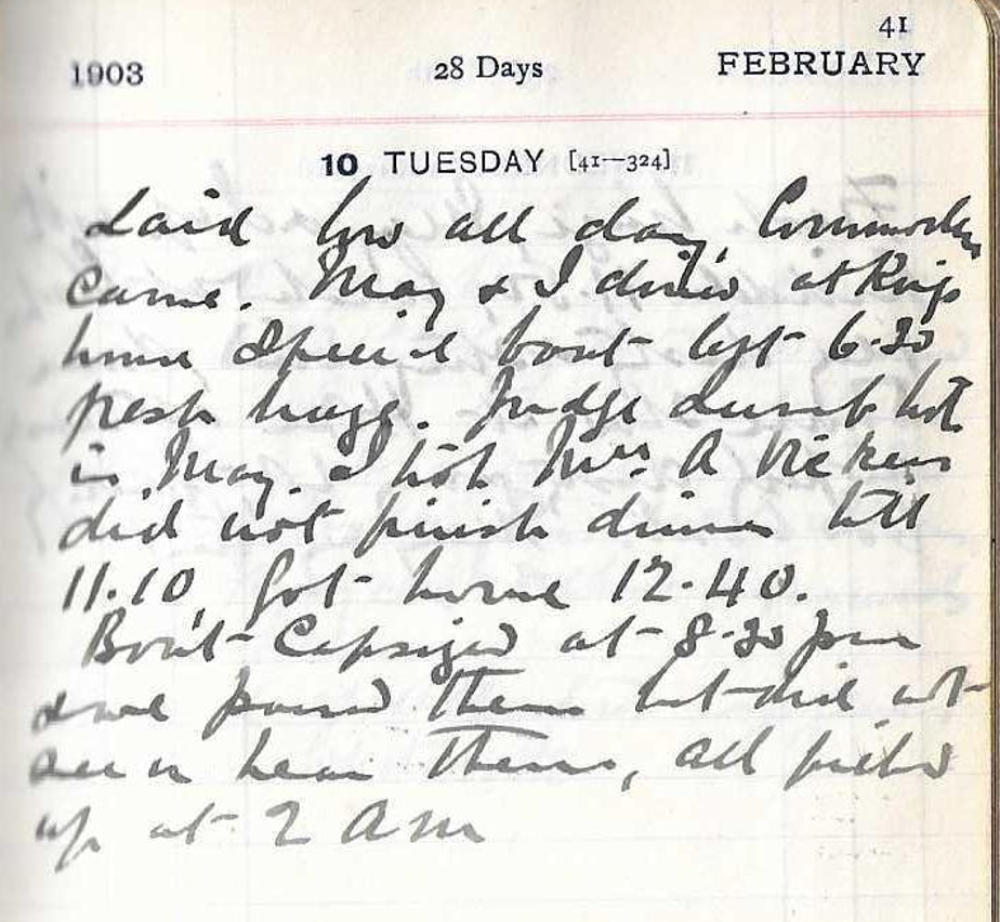 41
1903 28 Days FEBRUARY
10 TUESDAY [41—324]
Laid low all day, Commodore
came. May & I dined at Kings
house Special boat left 6.30
fresh huge. Judge Lumb took
in May. I took Mrs. A Vickers
did not finish dinner till
11.10, got home 12.40.
Boat Capsized at 8.30 pm
& we passed them but did not
see or hear them, all picked
up at 2 am